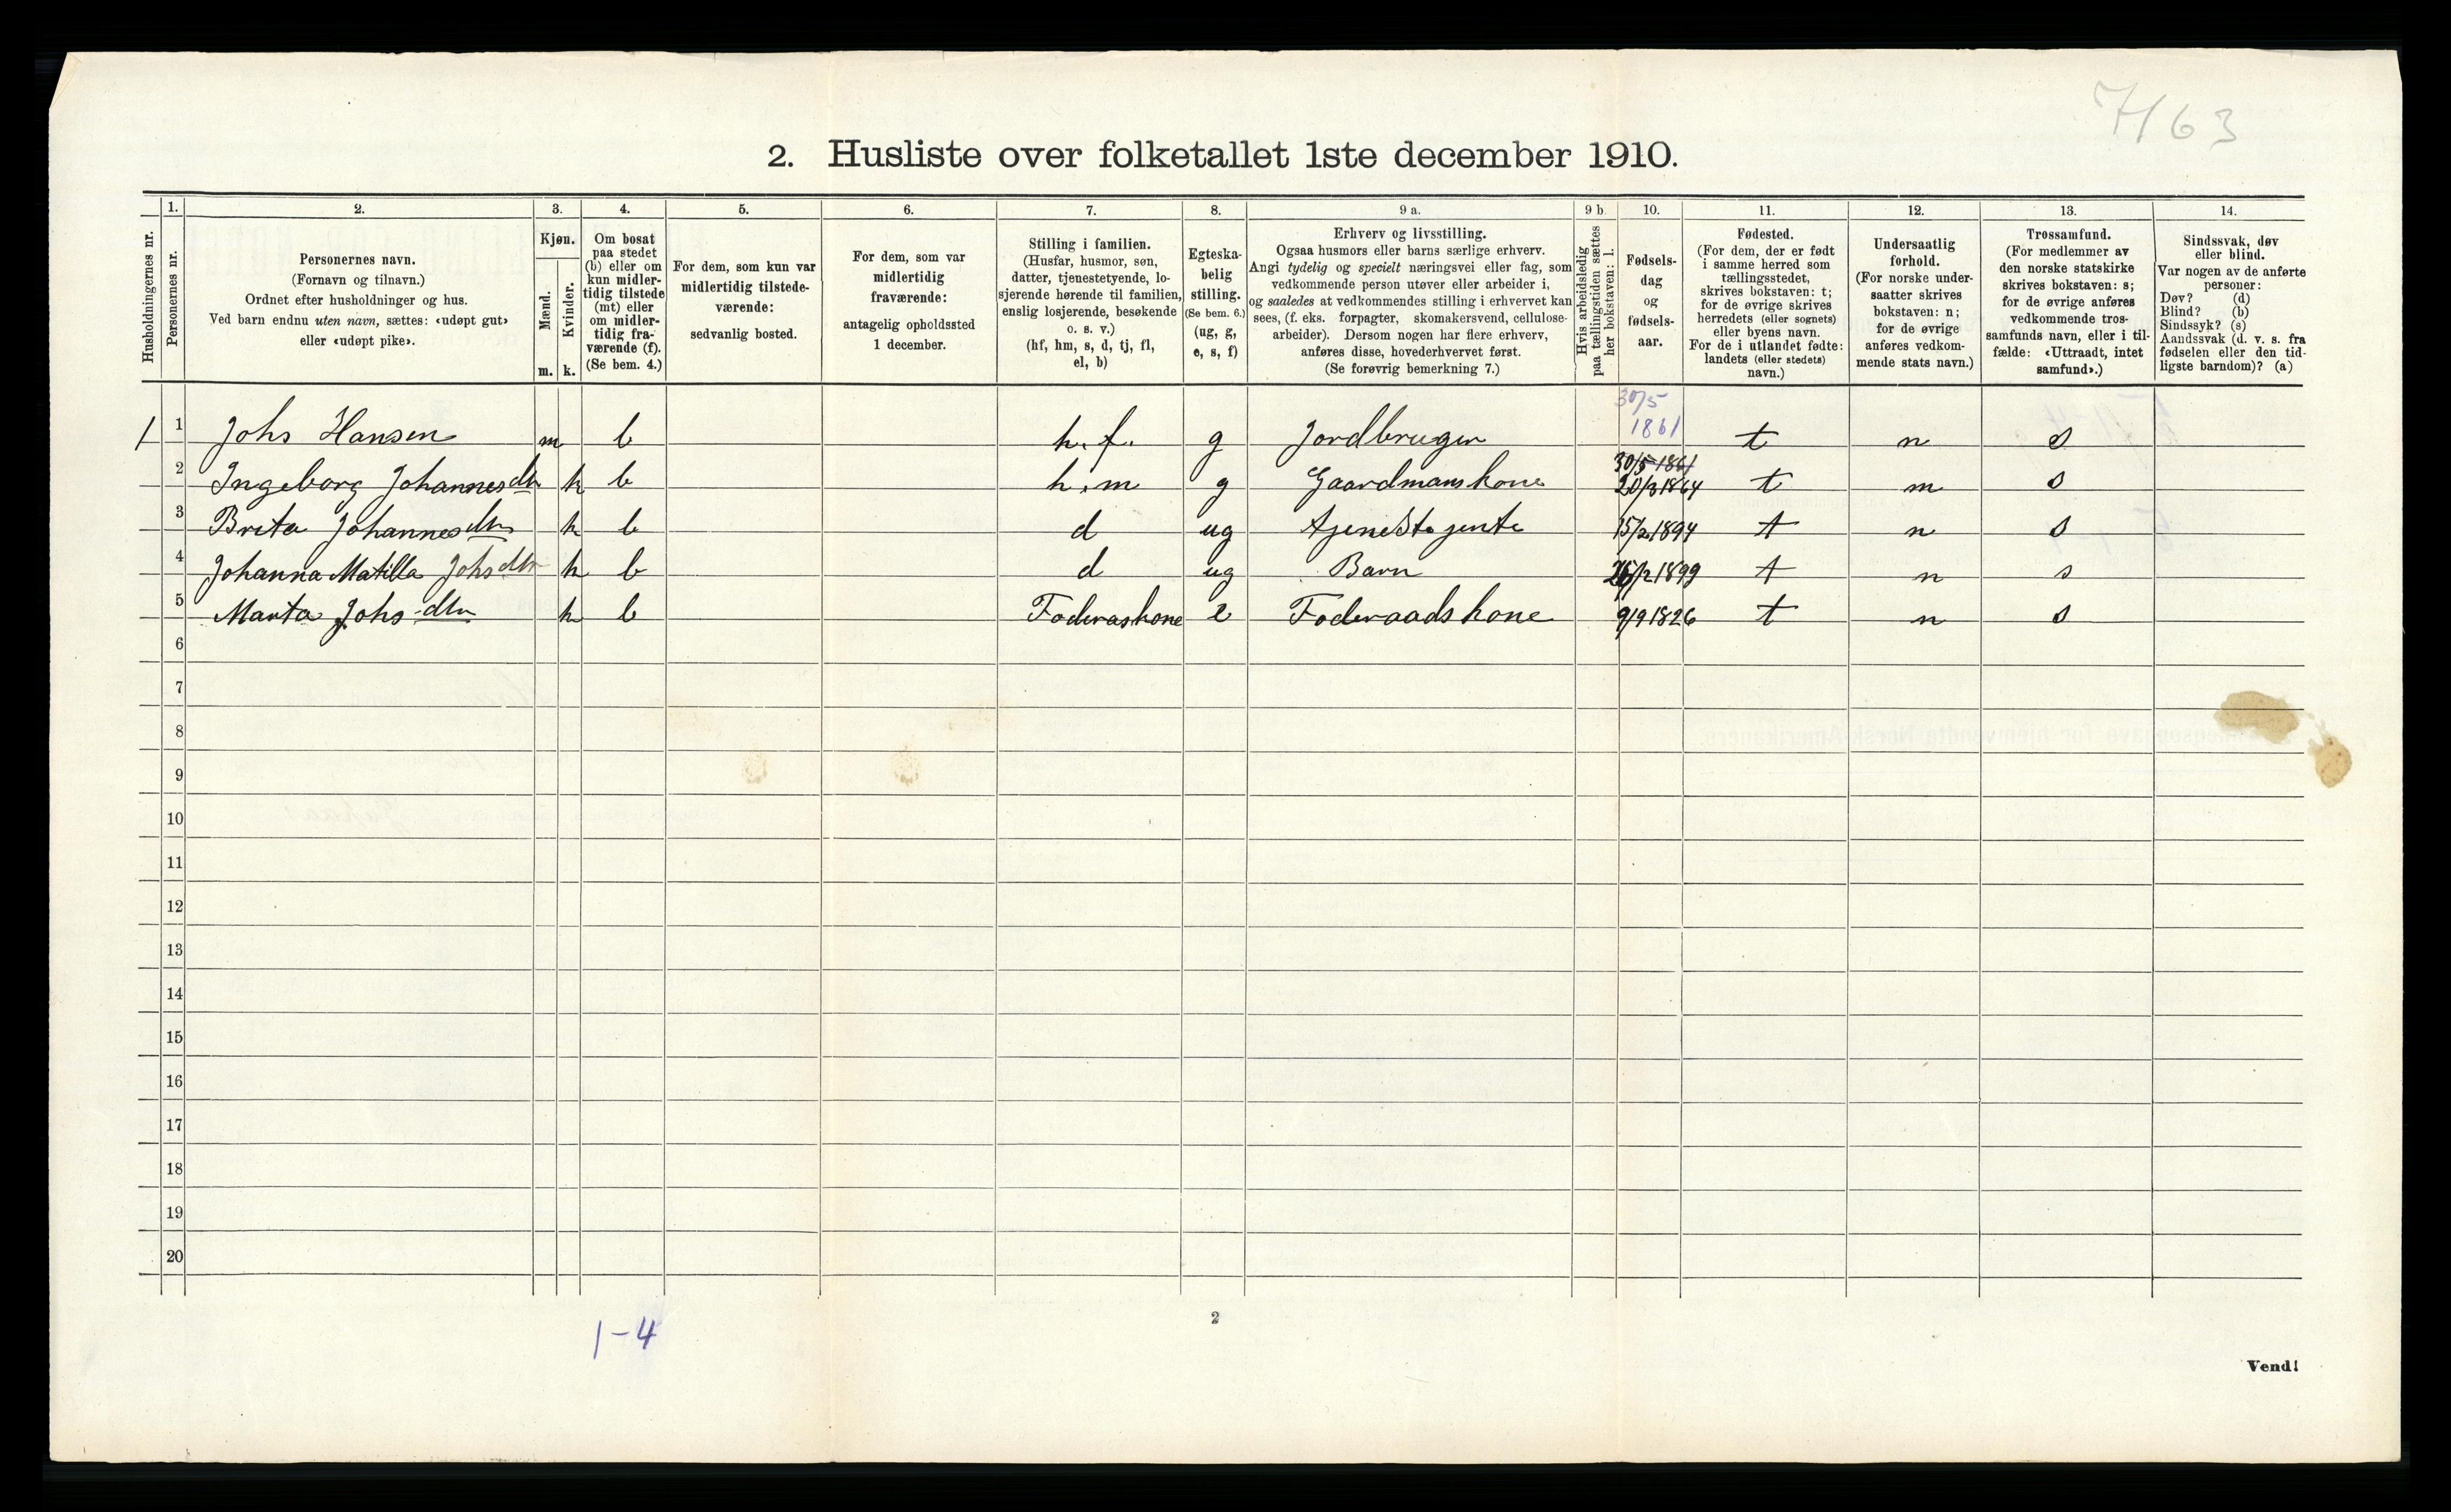 7/63
2. Husliste over folketallet 1ste december 1910.
Husholdningernes nr.
1. Personernes nr.
2. Personernes navn. (Fornavn og tilnavn.) Ordnet efter husholdninger og hus. Ved barn endnu uten navn, sættes: «udøpt gut» eller «udøpt pike».
3. Kjøn. Mænd. m. Kvinder. k.
4. Om bosat paa stedet (b) eller om kun midlertidig tilstede (mt) eller om midlertidig fraværende (f). (Se bem. 4.)
5. For dem, som kun var midlertidig tilstedeværende: sedvanlig bosted.
6. For dem, som var midlertidig fraværende: antagelig opholdssted 1 december.
7. Stilling i familien. (Husfar, husmor, søn, datter, tjenestetyende, losjerende hørende til familien, enslig losjerende, besøkende o. s. v.) (hf, hm, s, d, tj, fl, el, b)
8. Egteskabelig stilling. (Se bem. 6.) (ug, g, e, s, f)
9 a. Erhverv og livsstilling. Ogsaa husmors eller barns særlige erhverv. Angi tydelig og specielt næringsvei eller fag, som vedkommende person utøver eller arbeider i, og saaledes at vedkommendes stilling i erhvervet kan sees, (f. eks. forpagter, skomakersvend, cellulosearbeider). Dersom nogen har flere erhverv, anføres disse, hovederhvervet først. (Se forøvrig bemerkning 7.)
9 b. Hvis arbeidsledig paa tællingstiden sættes her bokstaven: l.
10. Fødselsdag og fødselsaar.
11. Fødested. (For dem, der er født i samme herred som tællingsstedet, skrives bokstaven: t; for de øvrige skrives herredets (eller sognets) eller byens navn. For de i utlandet fødte: landets (eller stedets) navn.)
12. Undersaatlig forhold. (For norske undersaatter skrives bokstaven: n; for de øvrige anføres vedkommende stats navn.)
13. Trossamfund. (For medlemmer av den norske statskirke skrives bokstaven: s; for de øvrige anføres vedkommende trossamfunds navn, eller i tilfælde: «Uttraadt, intet samfund».)
14. Sindssvak, døv eller blind. Var nogen av de anførte personer: Døv? (d) Blind? (b) Sindssyk? (s) Aandssvak (d. v. s. fra fødselen eller den tidligste barndom)? (a)
1 1 Johs Hansen m b h. f. g Jordbruger 30/5 1861 t n s
30/5 1861
2 Ingeborg Johannesdtr k b h. m g Gaardmanskone 20/3 1864 t n s
3 Brita Johannesdtr k b d ug tjeneste jente 15/2 1894 t n s
4 Johanna Matilla Johsdtr k b d ug Barn 1899 t n s
5 Marta Johs-dtr k b Foderaskone e Foderaadskone 9/9 1826 t n s
6
7
8
9
10
11
12
13
14
15
16
17
18
19
20
1-4
2
Vend!